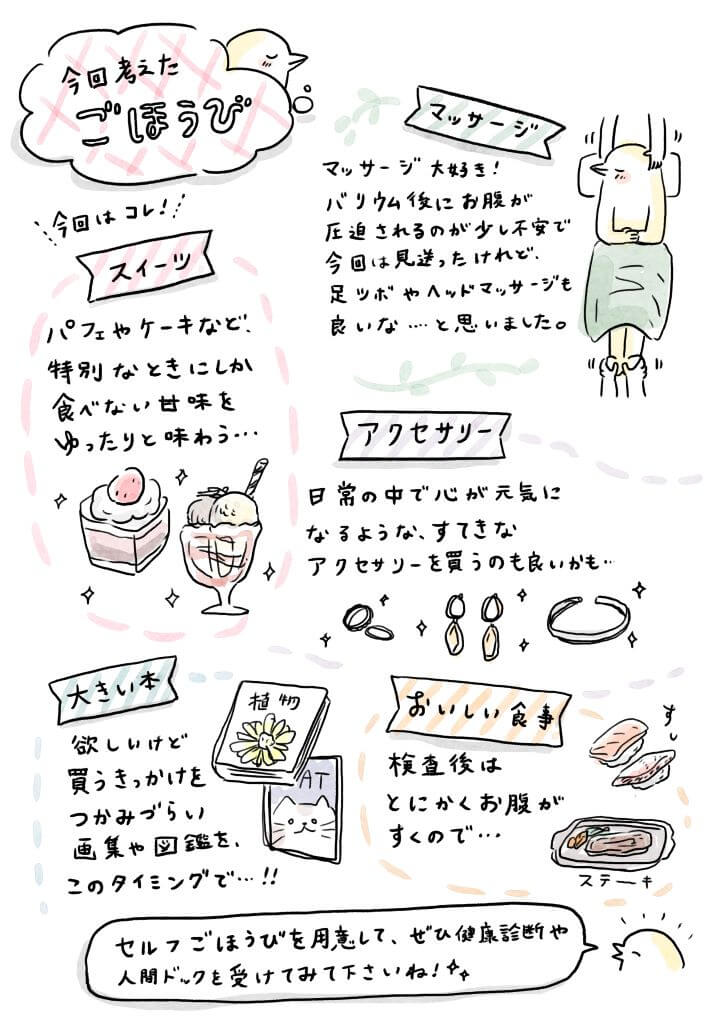 今回考えた
ごほうび
今回はコレ!
スイーツ
パフェやケーキなど、
特別なときにしか
食べない甘味を
ゆったりと味わう…
マッサージ
マッサージ大好き!
バリウム後にお腹が
圧迫されるのが少し不安で
今回は見送ったけれど、
足ツボやヘッドマッサージも
良いな‥‥と思いました。
アクセサリー
日常の中で心が元気に
なるような、すてきな
アクセサリーを買うのも良いかも…
大きい本
欲しいけど
買うきっかけを
つかみづらい
画集や図鑑を、
このタイミングで…!!
植物
AT
おいしい食事
検査後は
とにかくお腹が
すくので…
すし
ステーキ
セルフごほうびを用意して、ぜひ健康診断や
人間ドックを受けてみて下さいね!